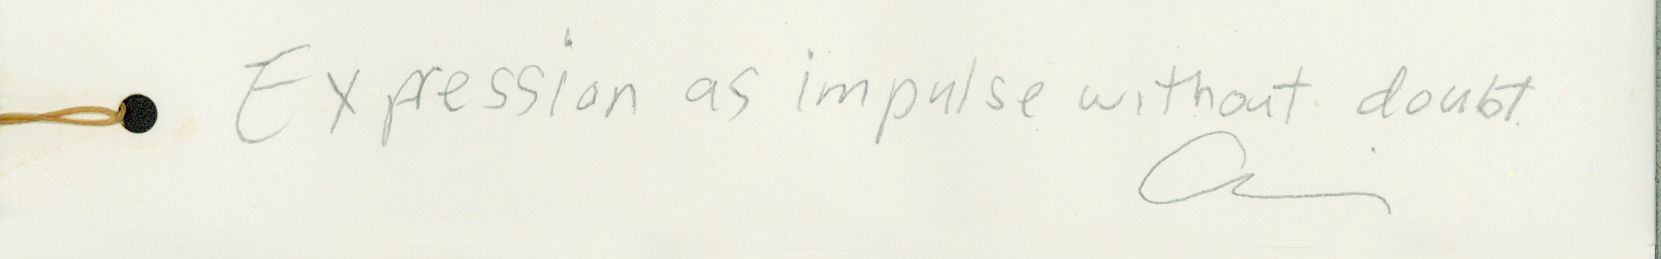 Expression as impulse without doubt.